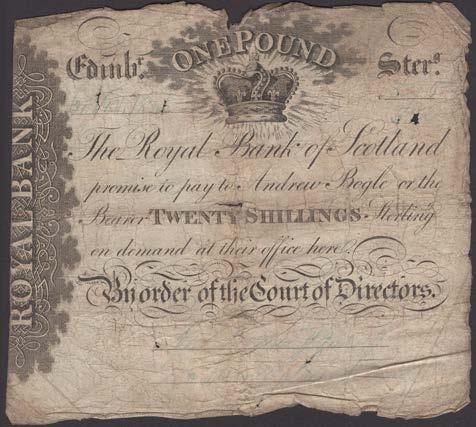 ROYAL BANK
ONE POUND
Edinbr. Sters.
The Royal Bank of Scotland
promise to pay to Andrew Bogle or the
Bearer TWENTY SHILLINGS Sterling
on demand at their office here.
By order of the Court of Directors.